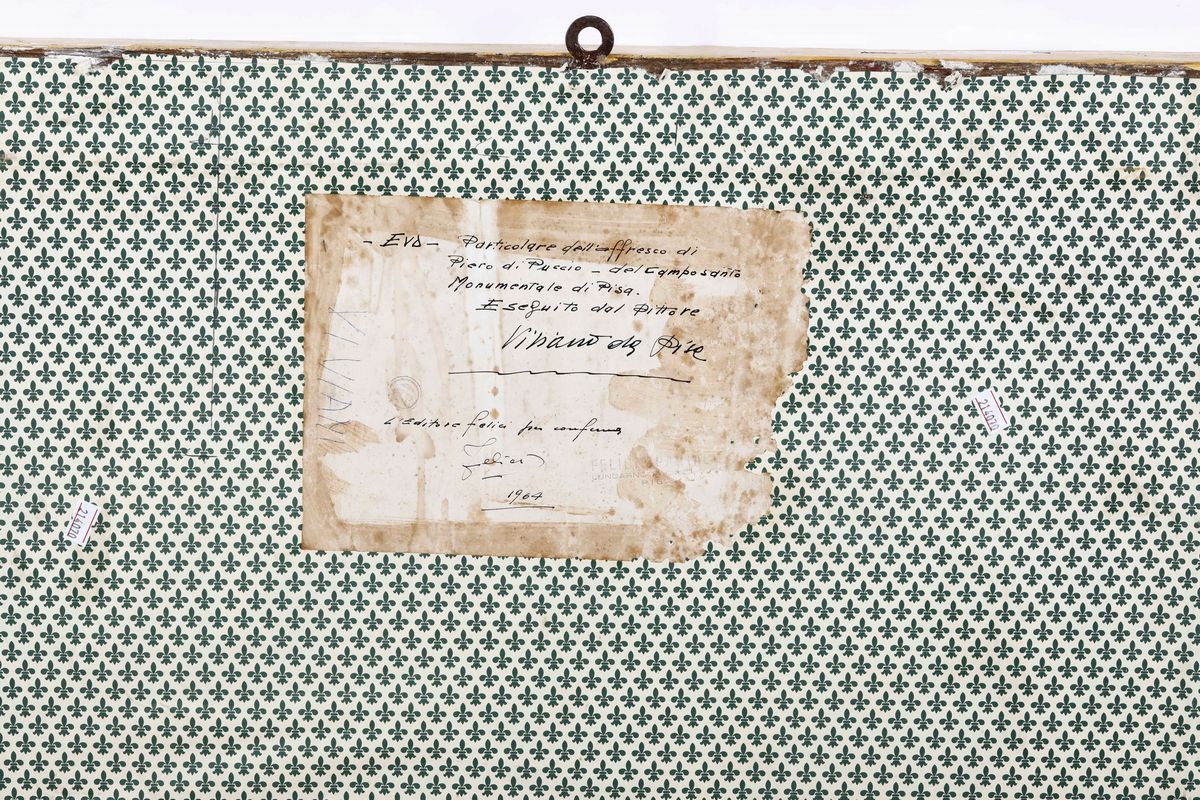 - EVA - Particolare dell'affresco di
Piero di Puccio - del Camposanto
Monumentale di Pisa.
Eseguito dal Pittore
Viviano da Pisa
L'Editore Felici per conferma
Felici
1964
FELICI
214070
214070